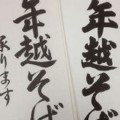 年越そば
年越そば
承ります